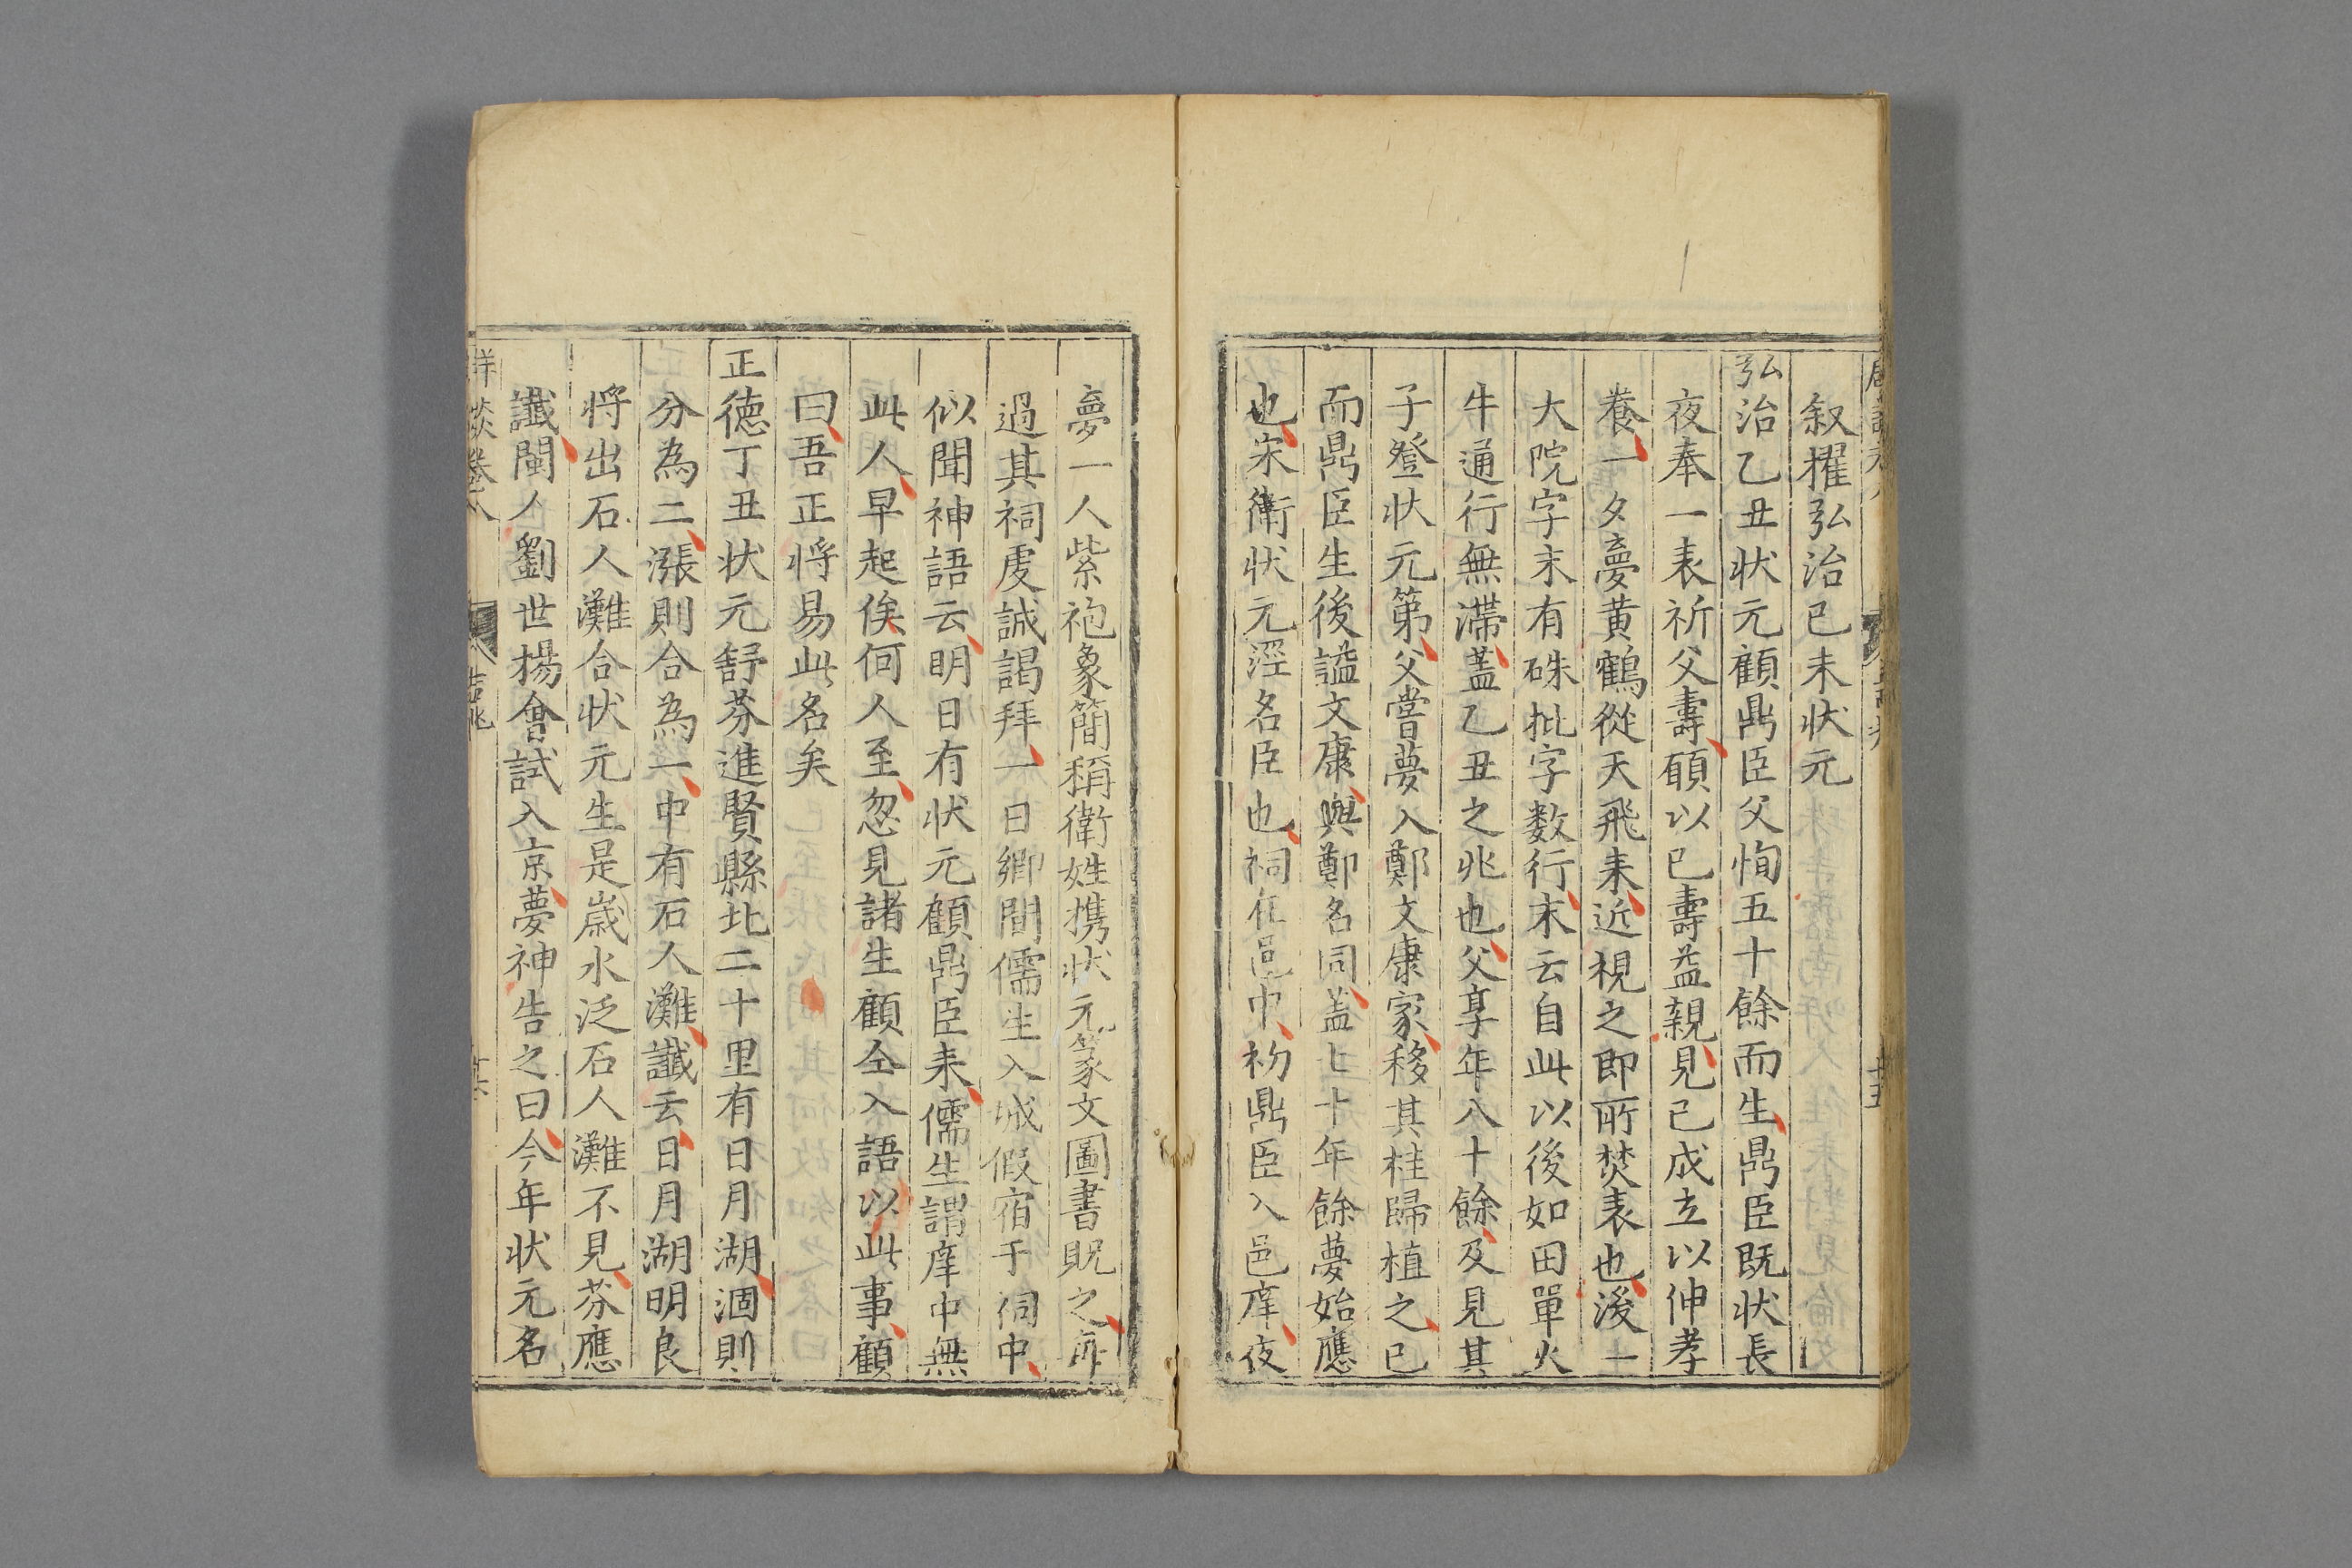 叙擢弘治己未状元
弘治乙丑状元顧鼎臣父恂五十餘而生鼎臣既状長
夜奉一表祈父壽願以己壽益親見己成立以伸孝
養一夕夢黄鶴從天飛来近視之即所焚表也後一
大院字末有硃批字数行末云自此以後如田單火
牛通行無滯蓋乙丑之兆也父享年八十餘及見其
子登状元第父嘗夢入鄭文康家移其桂歸植之已
而鼎臣生後謚文康與鄭名同蓋七十年餘夢始應
也宋衛状元涇名臣也祠在邑中初鼎臣入邑庠夜
夢一人紫袍象簡稱衛姓携状元篆文圖書貺之每
過其祠虔誠謁拜一日鄉間儒生入城假宿于祠中
似聞神語云明日有状元顧鼎臣来儒生謂庠中無
此人早起俟何人至忽見諸生顧仝入語以此事顧
曰吾正将易此名矣
正德丁丑状元舒芬進賢縣北二十里有日月湖涸則
分為二漲則合為一中有石人灘讖云日月湖明良
将出石人灘合状元生是歲水泛石人灘不見芬應
讖閩人劉世揚會試入京夢神告之曰今年状元名